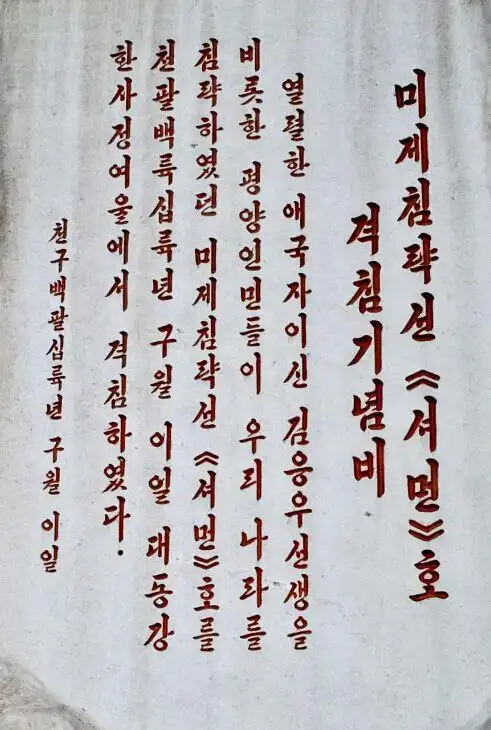 미제침략선 《셔먼》호
격침기념비
열렬한 애국자이신 김응우선생을
비롯한 평양인민들이 우리 나라를
침략하였던 미제침략선 《셔먼》호를
천팔백륙십륙년 구월 이일 대동강
한사정여울에서 격침하였다.
천구백팔십륙년 구월 이일